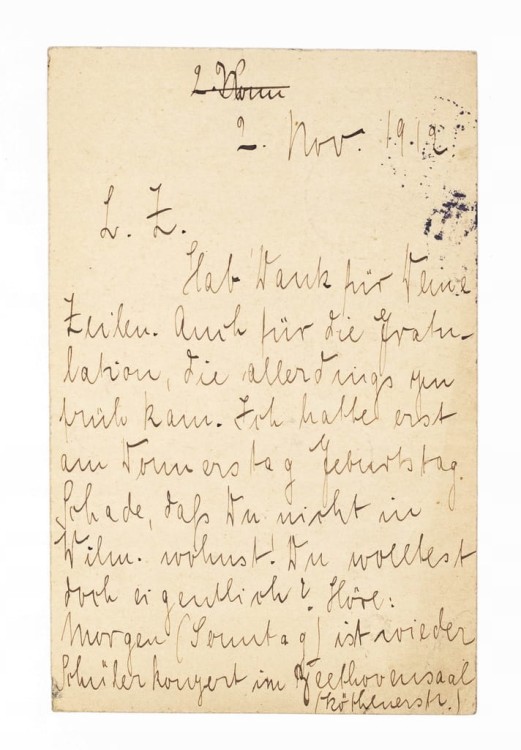 2. Nov. 1912
L. Z.
Hab Dank für Deine
Zeilen. Auch für die Gratu-
lation, die allerdings zu
früh kam. Ich hatte erst
am Donnerstag Geburtstag.
Schade, daß Du nicht in
Wilm. wohnst! Du wolltest
doch eigentlich? Höre:
Morgen (Sonntag) ist wieder
Schülerkonzert im Beethovensaal
(Köthenerstr.)